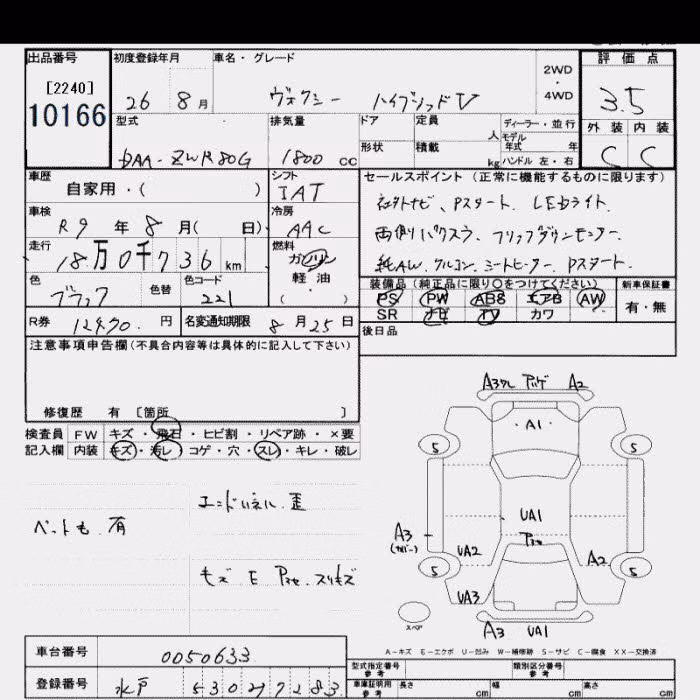 出品番号 初度登録年月 車名・グレード 評価点
[2240]
10166
26 8月 ヴォクシー ハイブリッドV 2WD・4WD 3.5
型式 排気量 ドア 定員 人 ディーラー・並行 外装 内装
形状 積載 kg モデル年式 年 ハンドル 左・右
DAA-ZWR80G 1800 cc C C
車歴 シフト セールスポイント(正常に機能するものに限ります)
自家用・( ) IAT
社外ナビ、Pスタート、LEDライト
車検 冷房
R9 年 8 月( 日) AAC 両側パワスラ、フリップダウンモニター
走行 燃料
18万0千736 km ガソリン・軽油・( )
純AW、クルコン、シートヒーター、Pスタート
色 色替 色コード 装備品(純正品に限り○をつけてください) 新車保証書
ブラック 221 PS PW ABS エアB AW 有・無
SR ナビ TV カワ
R券 12470 円 名変通知期限 8月25日 後日品
注意事項申告欄(不具合内容等は具体的に記入して下さい)
修復歴 有 [箇所 ]
検査員 FW キズ・飛石・ヒビ割・リペア跡・×要
記入欄 内装 キズ・汚レ・コゲ・穴・スレ・キレ・破レ
A3 A2
A1
5 5
ペットも 有
UA1
A3
(カバー)
UA2 A2
5 5
UA3
A3 UA1
スペア
A-キズ E-エクボ U-凹み W-補修跡 S-サビ C-腐食 XX-交換済
車台番号 0050633 型式指定番号 参考 類別区分番号 参考
登録番号 水戸 530 7283 車庫証明用 参考 長さ cm 幅 cm 高さ cm